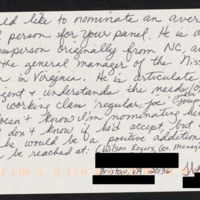 ld like to nominate an aver
person for your panel. He is a
person originally from NC, an
the general manager of the Miss
n in Virginia. He is articulate
gent & understands the needs of
working class "regular joe"
oesn't know I'm nominating him
don't know if he'd accept, but
he would be a positive addition
be reached at: (Wilson Rogers, Gen. Manag
Bristow, VA 20136